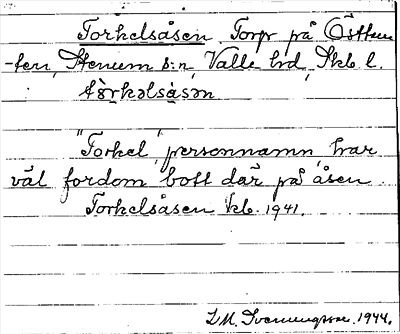 Torkelsåsen Torp på Östtun
-fen, Stenum s:n, Valle hrd, Skb. l.
tòrkəlsàsən
"Torkel", personnamn, har
väl fordom bott där på åsen.
Torkelsåsen kb. 1941.
1944.